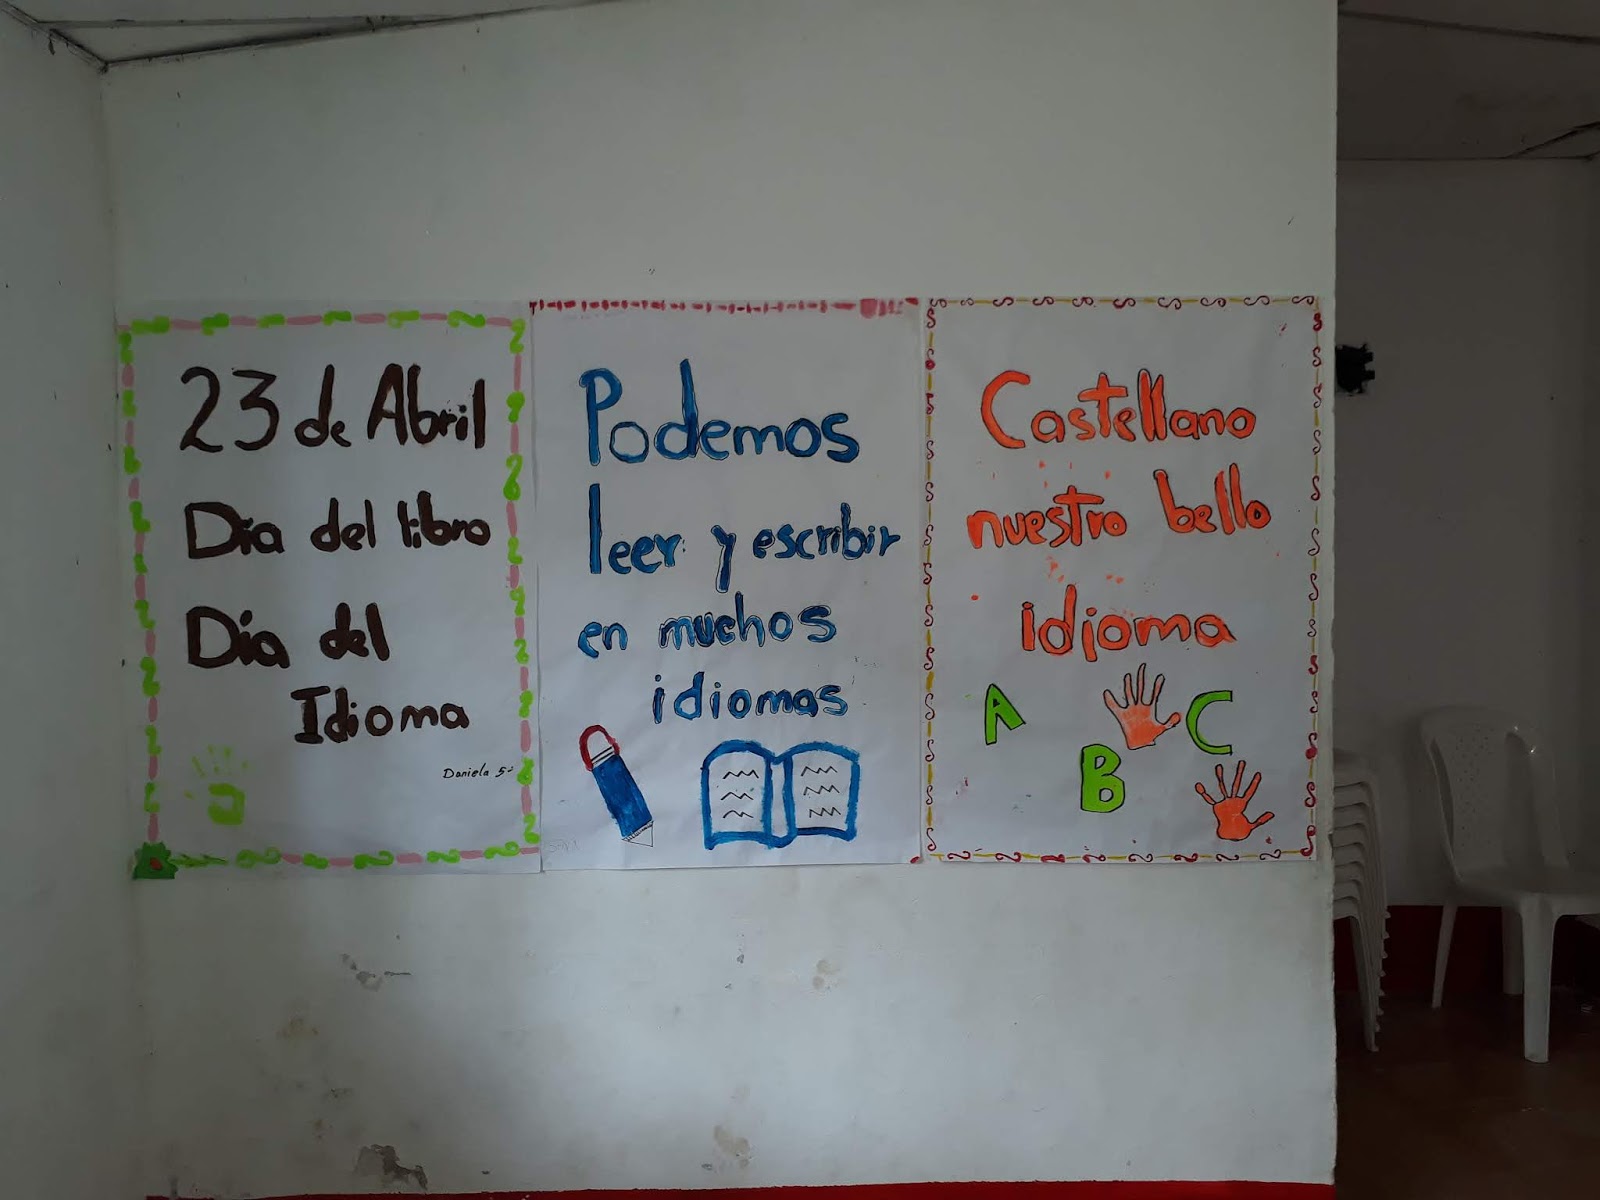 23 de Abril
Día del libro
Día del
Idioma
Daniela 5º
Podemos
leer y escribir
en muchos
idiomas
Castellano
nuestro bello
idioma
A
B
C